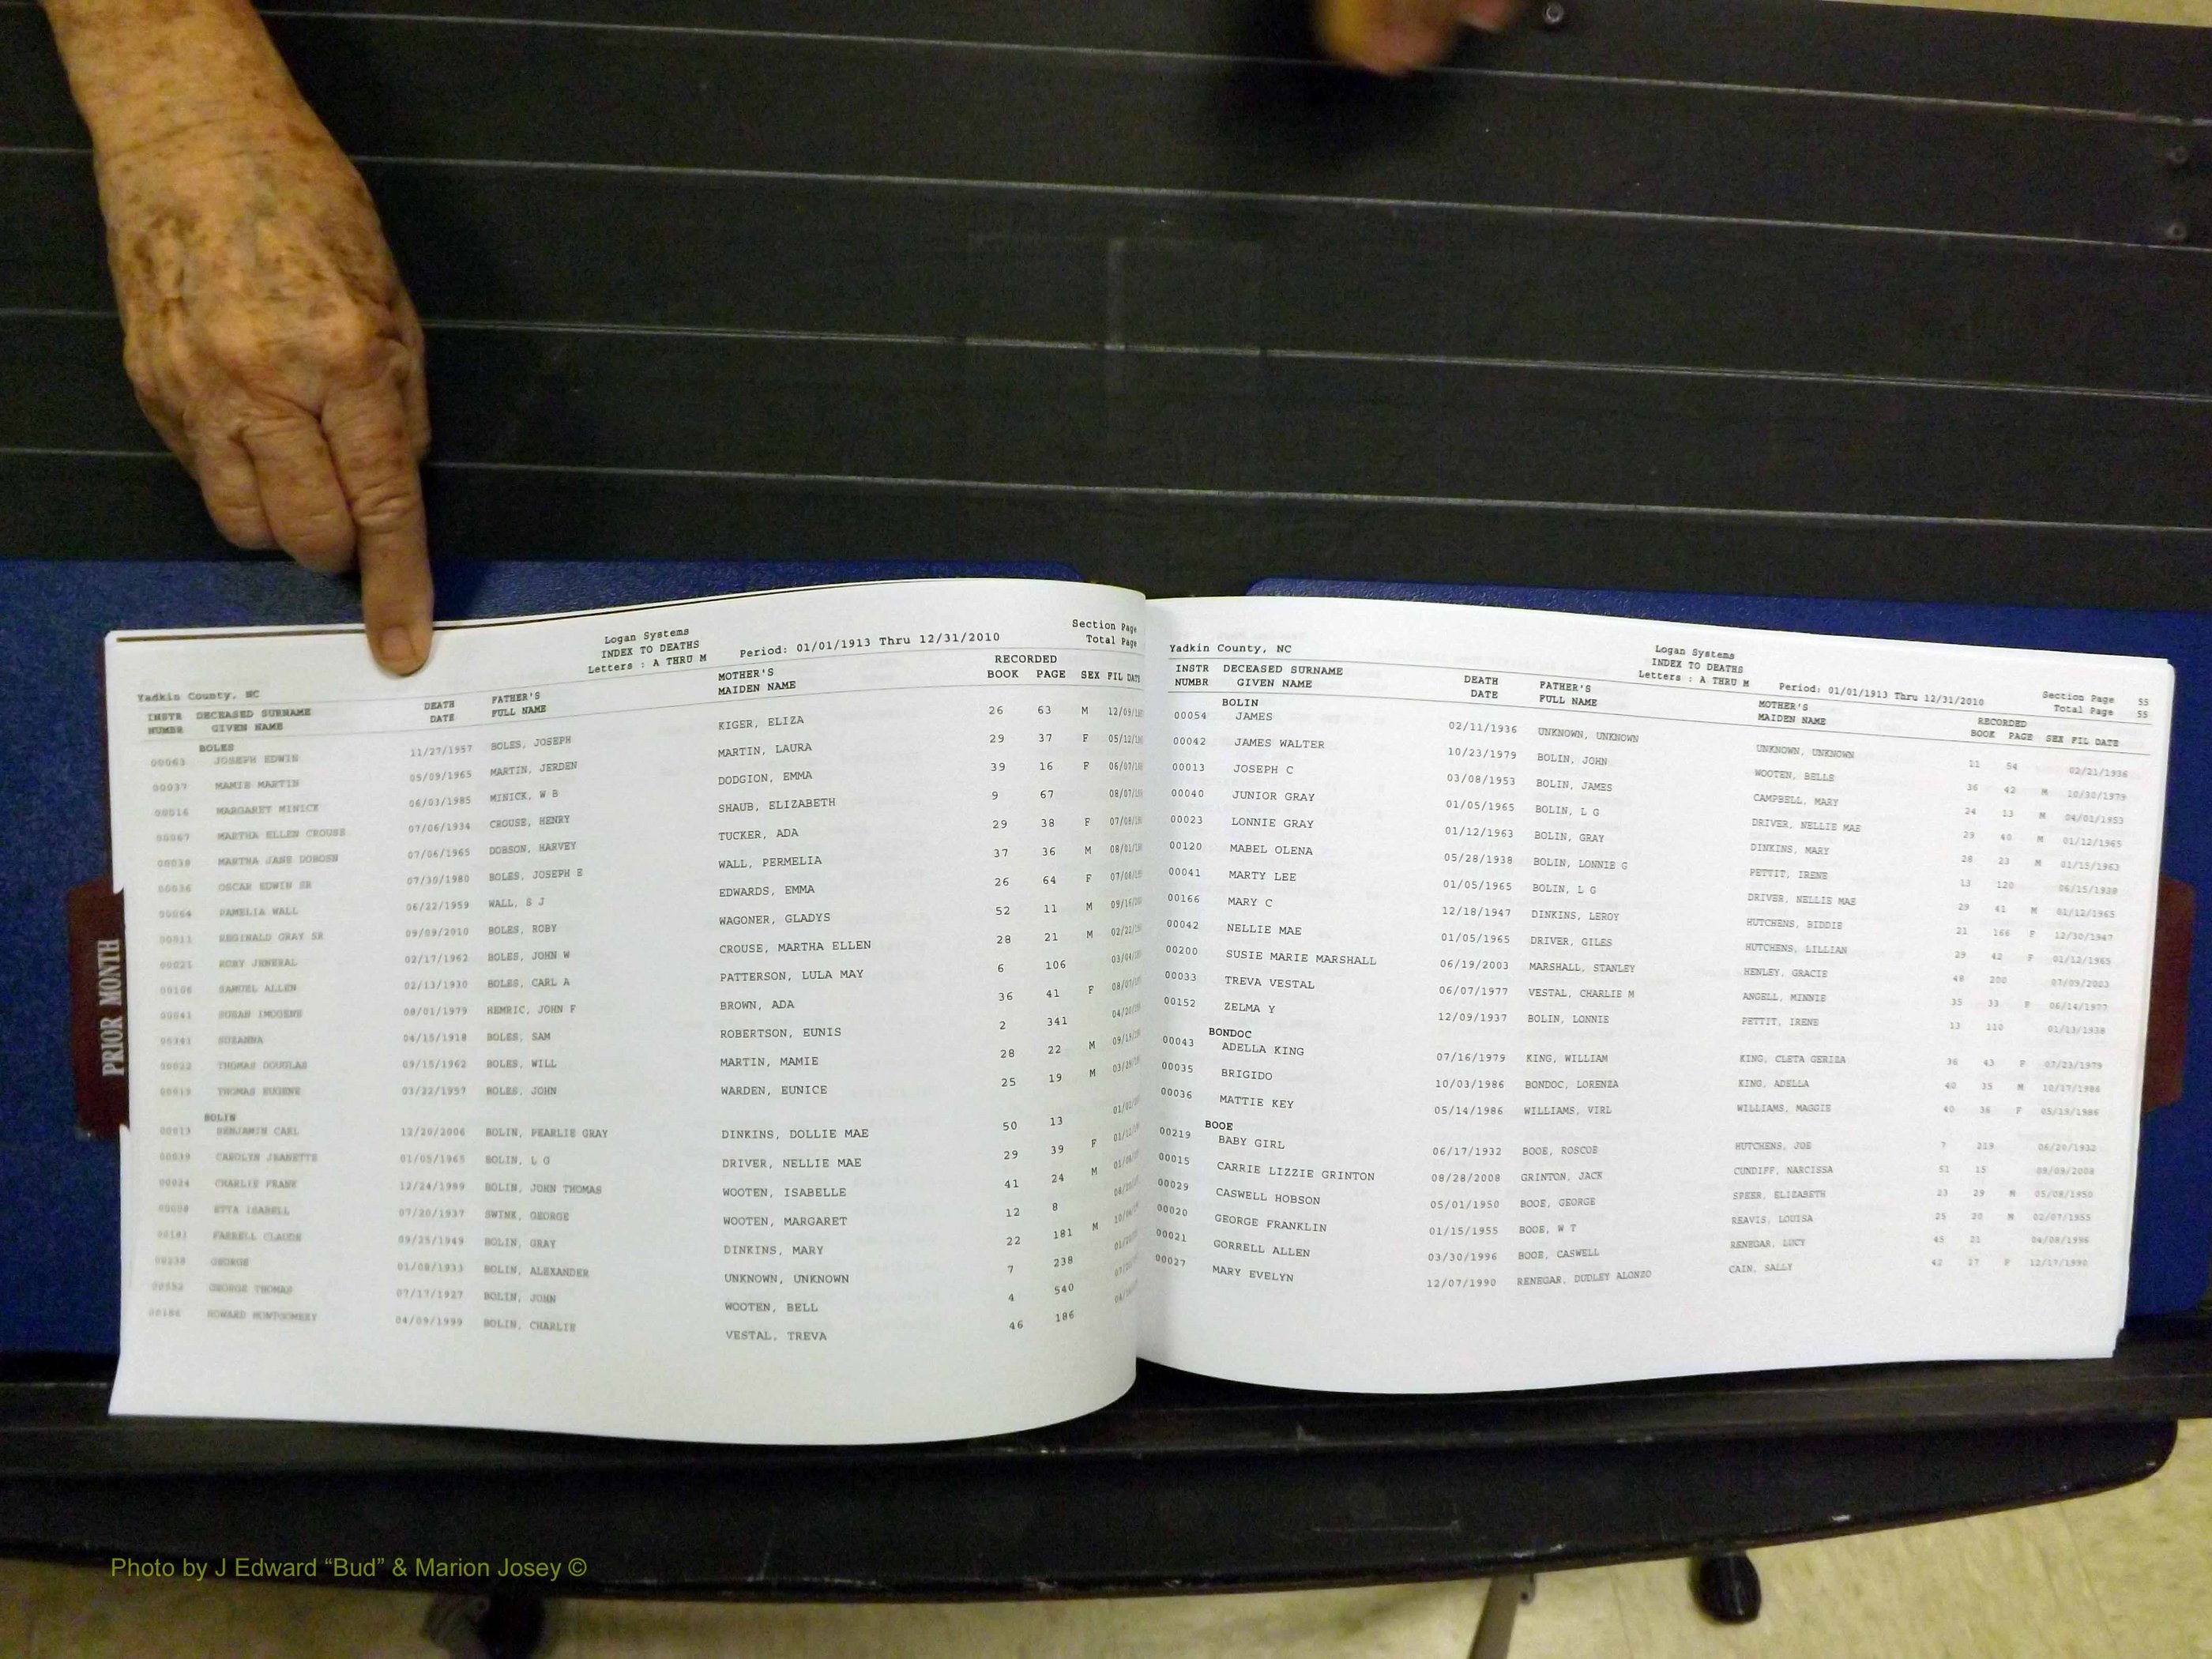 Logan Systems
INDEX TO DEATHS
Letters : A THRU M Period: 01/01/1913 Thru 12/31/2010
Section Page
Total Page
Yadkin County, NC
INSTR DECEASED SURNAME DEATH FATHER'S MOTHER'S RECORDED
NUMBR GIVEN NAME DATE FULL NAME MAIDEN NAME BOOK PAGE SEX FIL DATE
BOLES
00063 JOSEPH EDWIN 11/27/1957 BOLES, JOSEPH KIGER, ELIZA 26 63 M 12/09/
00037 MAMIE MARTIN 05/09/1965 MARTIN, JERDEN MARTIN, LAURA 29 37 F 05/12/
00016 MARGARET MINICK 06/03/1985 MINICK, W B DODGION, EMMA 39 16 F 06/07/
00067 MARTHA ELLEN CROUSE 07/06/1934 CROUSE, HENRY SHAUB, ELIZABETH 9 67 08/07/
MARTHA JANE DOBOSN 07/06/1965 DOBSON, HARVEY TUCKER, ADA 29 38 F 07/08/
00036 OSCAR EDWIN SR 07/30/1980 BOLES, JOSEPH E WALL, PERMELIA 37 36 M 08/01/
00064 PAMELIA WALL 06/22/1959 WALL, S J EDWARDS, EMMA 26 64 F 07/08/
00011 REGINALD GRAY SR 09/09/2010 BOLES, ROBY WAGONER, GLADYS 52 11 M 09/16/
00021 ROBY JENERAL 02/17/1962 BOLES, JOHN W CROUSE, MARTHA ELLEN 28 21 M 02/22/
00106 SAMUEL ALLEN 02/13/1930 BOLES, CARL A PATTERSON, LULA MAY 6 106 03/04/
00041 SUSAN IMOGENE 08/01/1979 HEMRIC, JOHN F BROWN, ADA 36 41 F 08/07/
00341 SUZANNA 04/15/1918 BOLES, SAM ROBERTSON, EUNIS 2 341 04/20/
00022 THOMAS DOUGLAS 09/15/1962 BOLES, WILL MARTIN, MAMIE 28 22 M 09/19/
00019 THOMAS EUGENE 03/22/1957 BOLES, JOHN WARDEN, EUNICE 25 19 M
BOLIN
00013 BENJAMIN CARL 12/20/2006 BOLIN, PEARLIE GRAY DINKINS, DOLLIE MAE 50 13 01/02/
00039 CAROLYN JEANETTE 01/05/1965 BOLIN, L G DRIVER, NELLIE MAE 29 39 F 01/12/
00024 CHARLIE FRANK 12/24/1989 BOLIN, JOHN THOMAS WOOTEN, ISABELLE 41 24 M
ETTA ISABELL 07/20/1937 SWINK, GEORGE WOOTEN, MARGARET 12 8
00181 FARRELL CLAUDE 09/25/1949 BOLIN, GRAY DINKINS, MARY 22 181 M
00238 GEORGE 01/08/1933 BOLIN, ALEXANDER UNKNOWN, UNKNOWN 7 238
GEORGE THOMAS 07/17/1927 BOLIN, JOHN WOOTEN, BELL 4 540
00186 HOWARD MONTGOMERY 04/09/1999 BOLIN, CHARLIE VESTAL, TREVA 46 186
PRIOR MONTH
Yadkin County, NC
Logan Systems
INDEX TO DEATHS
Letters : A THRU M Period: 01/01/1913 Thru 12/31/2010
Section Page 55
Total Page 55
INSTR DECEASED SURNAME DEATH FATHER'S MOTHER'S RECORDED
NUMBR GIVEN NAME DATE FULL NAME MAIDEN NAME BOOK PAGE SEX FIL DATE
BOLIN
00054 JAMES 02/11/1936 UNKNOWN, UNKNOWN UNKNOWN, UNKNOWN 11 54 02/21/1936
00042 JAMES WALTER 10/23/1979 BOLIN, JOHN WOOTEN, BELLE 36 42 M 10/30/1979
00013 JOSEPH C 03/08/1953 BOLIN, JAMES CAMPBELL, MARY 24 13 M 04/01/1953
00040 JUNIOR GRAY 01/05/1965 BOLIN, L G DRIVER, NELLIE MAE 29 40 M 01/12/1965
00023 LONNIE GRAY 01/12/1963 BOLIN, GRAY DINKINS, MARY 28 23 M 01/15/1963
00120 MABEL OLENA 05/28/1938 BOLIN, LONNIE G PETTIT, IRENE 13 120 06/15/1938
00041 MARTY LEE 01/05/1965 BOLIN, L G DRIVER, NELLIE MAE 29 41 M 01/12/1965
00166 MARY C 12/18/1947 DINKINS, LEROY HUTCHENS, BIDDIE 21 166 F 12/30/1947
00042 NELLIE MAE 01/05/1965 DRIVER, GILES HUTCHENS, LILLIAN 29 42 F 01/12/1965
00200 SUSIE MARIE MARSHALL 06/19/2003 MARSHALL, STANLEY HENLEY, GRACIE 48 200 07/09/2003
00033 TREVA VESTAL 06/07/1977 VESTAL, CHARLIE M ANGELL, MINNIE 35 33 F 06/14/1977
00152 ZELMA Y 12/09/1937 BOLIN, LONNIE PETTIT, IRENE 13 01/13/1938
BONDOC
00043 ADELLA KING 07/16/1979 KING, WILLIAM KING, CLETA GERIZA 36 43 F 07/23/1979
00035 BRIGIDO 10/03/1986 BONDOC, LORENZA KING, ADELLA 40 35 M 10/17/1986
00036 MATTIE KEY 05/14/1986 WILLIAMS, VIRL WILLIAMS, MAGGIE 40 36 F 05/15/1986
BOOE
00219 BABY GIRL 06/17/1932 BOOE, ROSCOE HUTCHENS, JOE 7 219 06/20/1932
00015 CARRIE LIZZIE GRINTON 08/28/2008 GRINTON, JACK CUNDIFF, NARCISSA 51 15 09/09/2008
00029 CASWELL HOBSON 05/01/1950 BOOE, GEORGE SPEER, ELIZABETH 23 29 M 05/08/1950
00020 GEORGE FRANKLIN 01/15/1955 BOOE, W T REAVIS, LOUISA 25 20 M 02/07/1955
00021 GORRELL ALLEN 03/30/1996 BOOE, CASWELL RENEGAR, LUCY 45 21 04/08/1996
00027 MARY EVELYN 12/07/1990 RENEGAR, DUDLEY ALONZO CAIN, SALLY 42 27 F 12/17/1990
Photo by J Edward “Bud” & Marion Josey ©